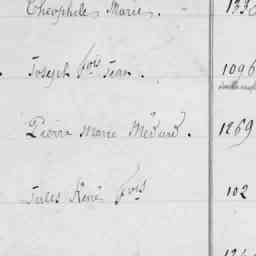 Théophile Marie.
Joseph fois Jean. 1096
Pierre Marie Médard. 1269
Jules René fois 102